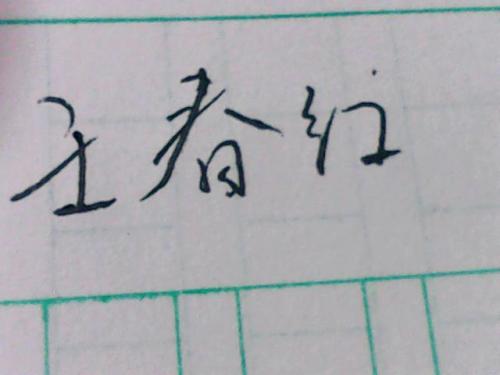 王春红